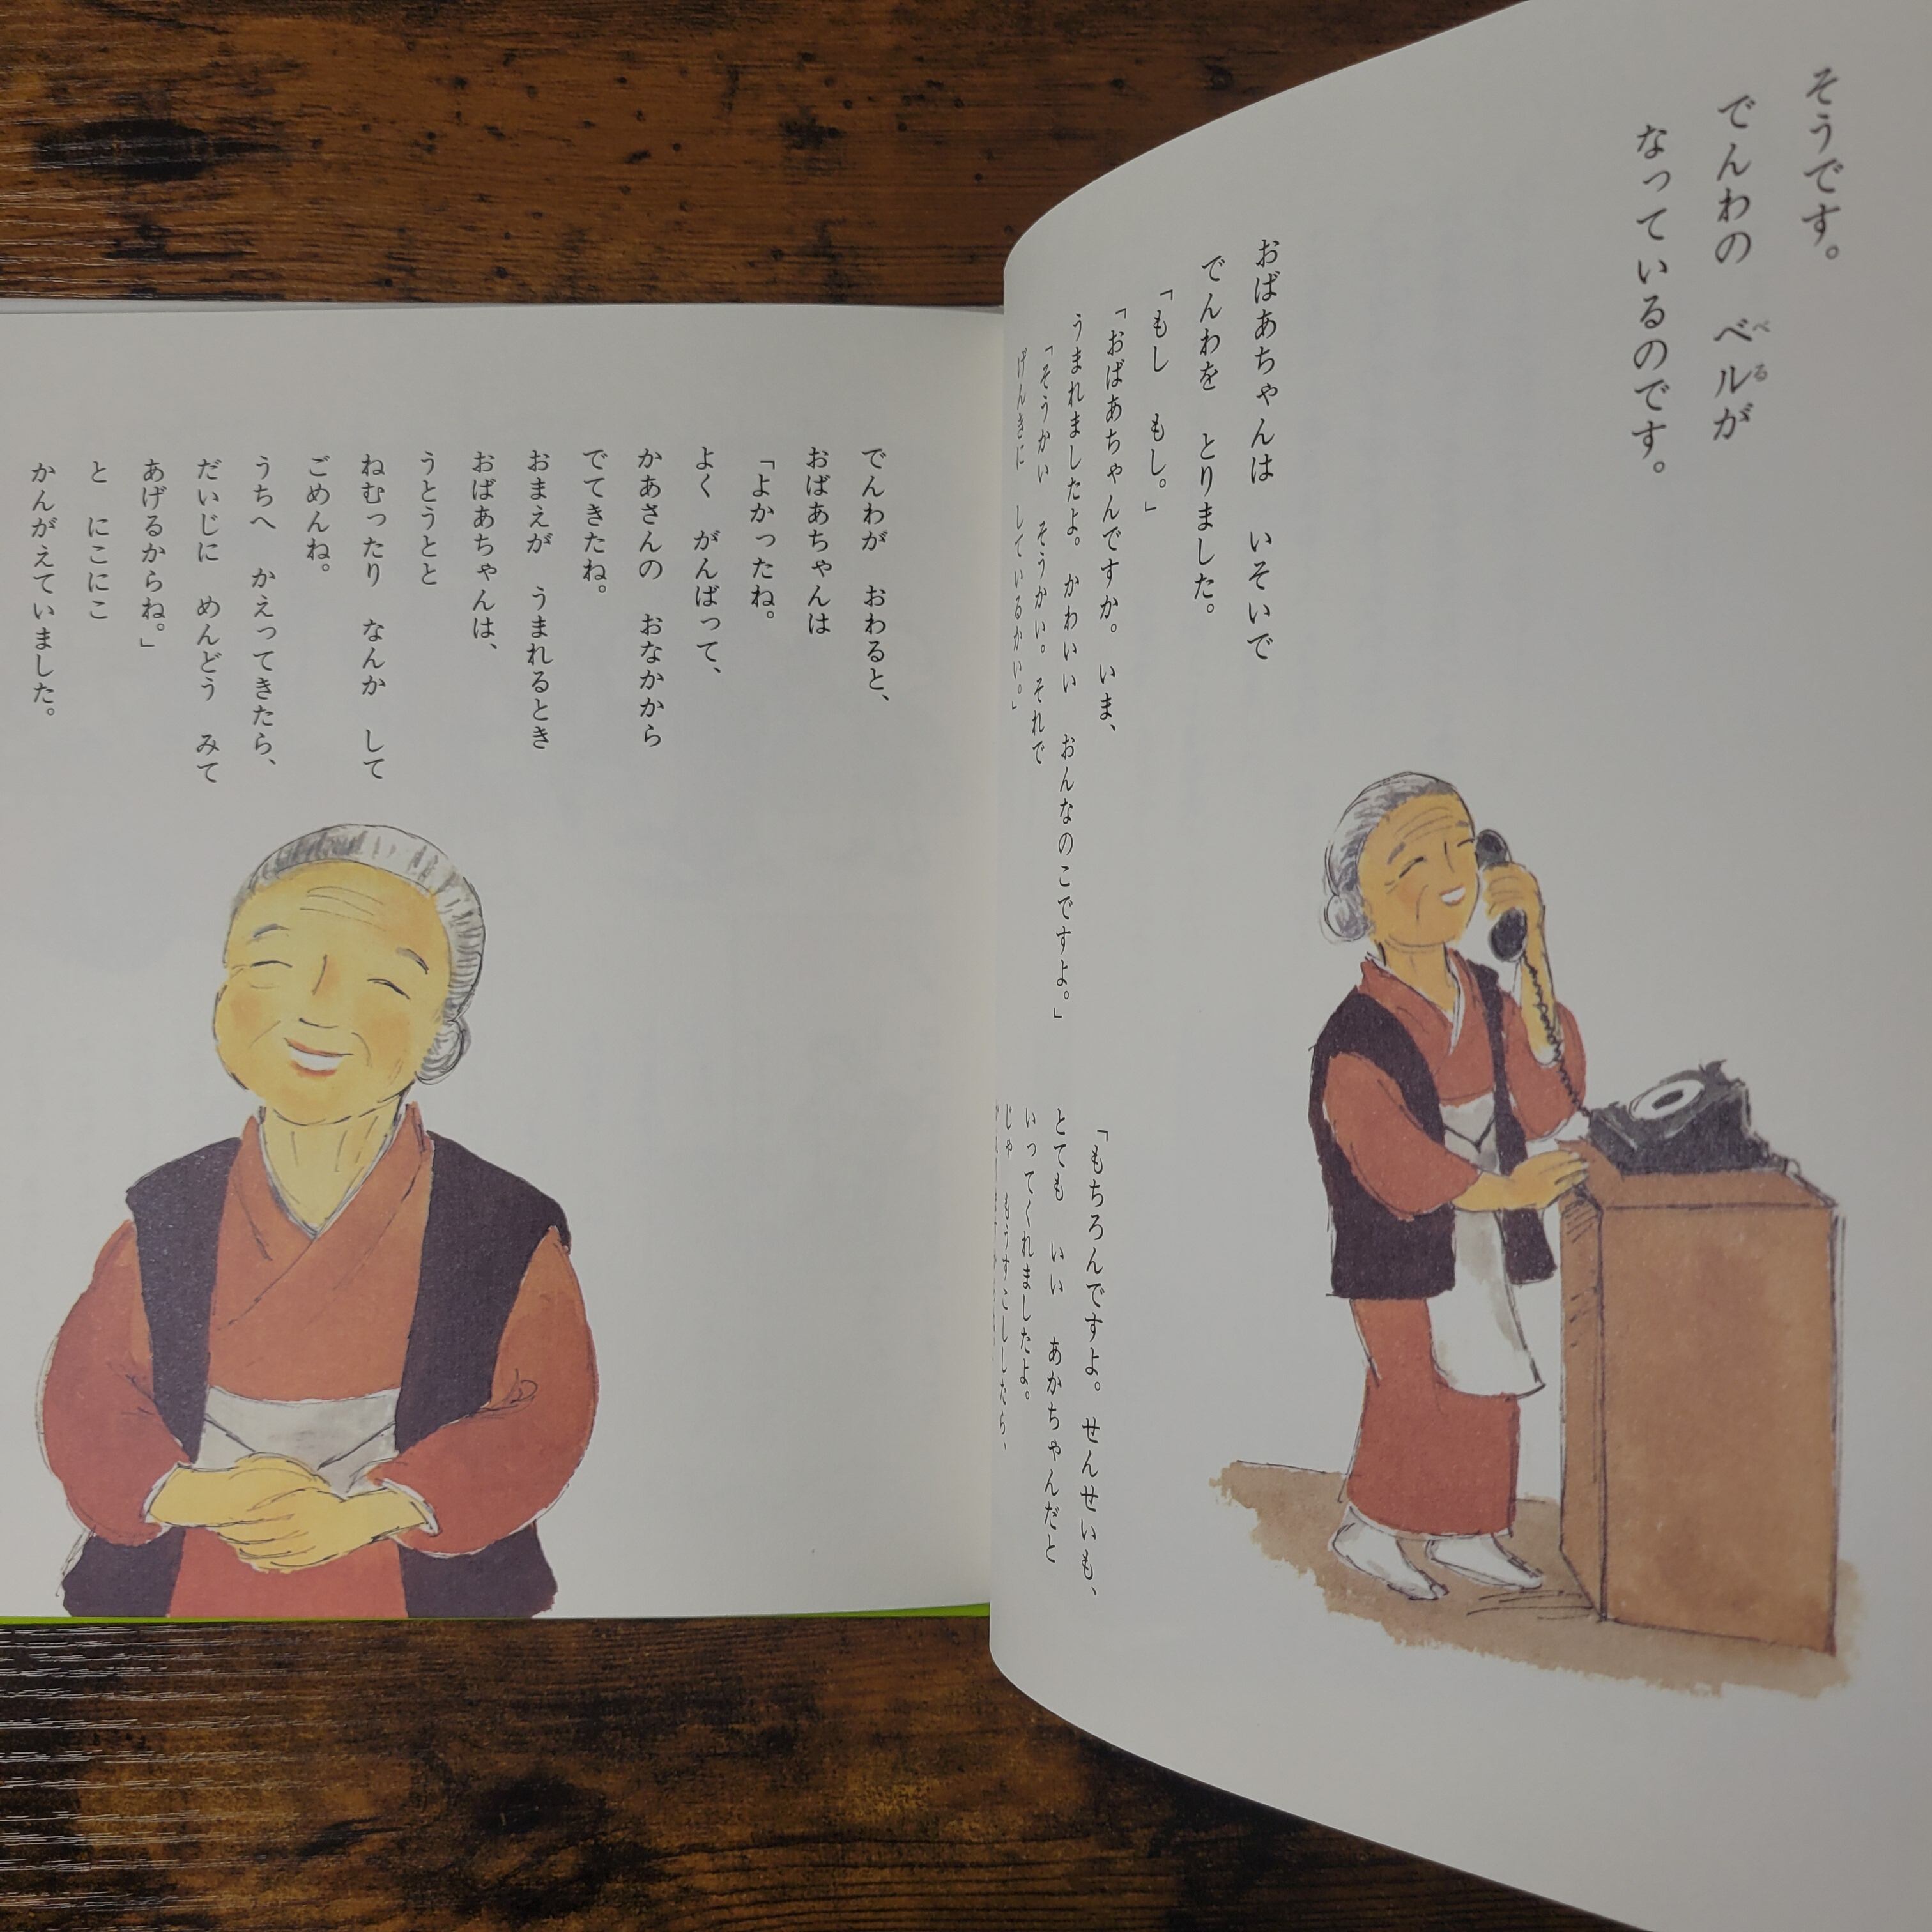 そうです。
でんわの　ベルが
べる
なっているのです。
おばあちゃんは　いそいで
でんわを　とりました。
「もし　もし。」
「おばあちゃんですか。いま、
うまれましたよ。かわいい　おんなのこですよ。」
「そうかい　そうかい。それで
げんきに　しているかい。」
「もちろんですよ。せんせいも、
とても　いい　あかちゃんだと
いってくれましたよ。
じゃ　もうすこししたら、
でんわが　おわると、
おばあちゃんは
「よかったね。
よく　がんばって、
かあさんの　おなかから
でてきたね。
おまえが　うまれるとき
おばあちゃんは、
うとうとと
ねむったり　なんか　して
ごめんね。
うちへ　かえってきたら、
だいじに　めんどう　みて
あげるからね。」
と　にこにこ
かんがえていました。